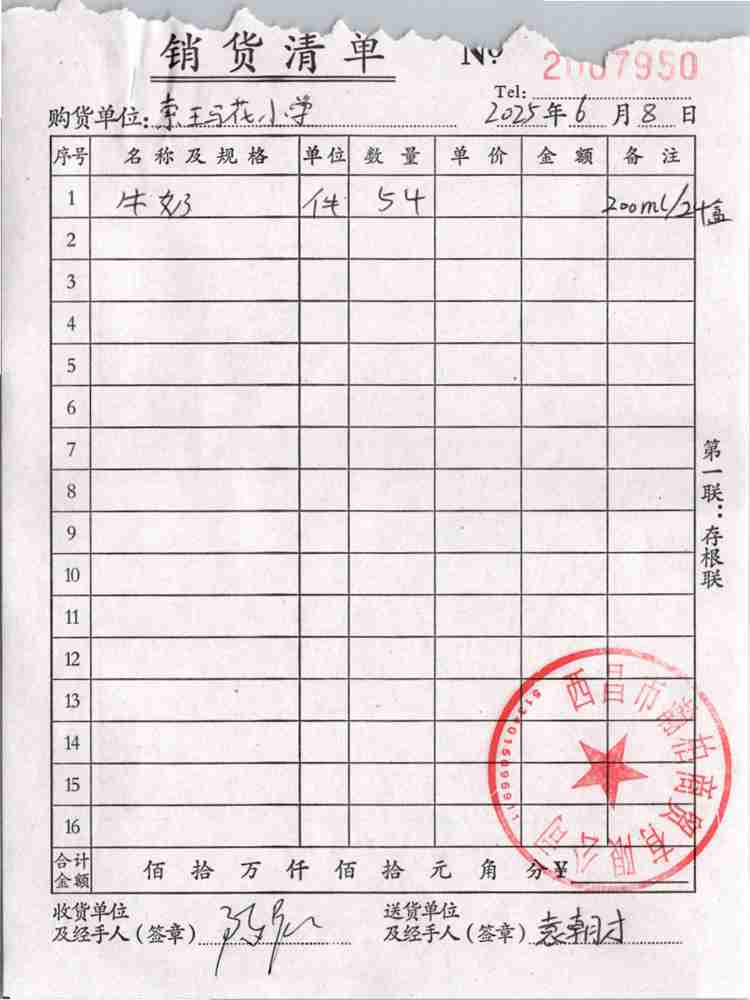 销货清单 № 2007950
Tel:
购货单位: 索玛花小学 2025年6月8日
序号 名称及规格 单位 数量 单价 金额 备注
1 牛奶 件 54 200ml/24盒
2
3
4
5
6
7
8
9
10
11
12
13
14
15
16
合计金额 佰 拾 万 仟 佰 拾 元 角 分 ¥
收货单位
及经手人(签章)
送货单位
及经手人(签章) 袁朝才
第一联:存根联
西昌市 柏商贸有限公司